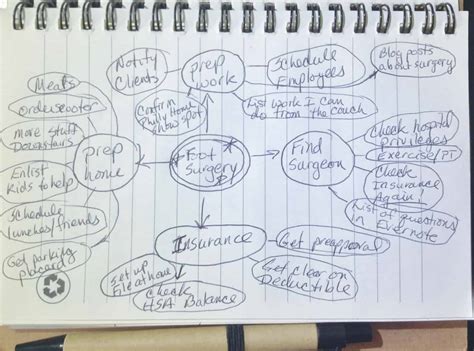 Notify
Clients
prep
work
Schedule
Employees
Blog posts
about surgery
Meals
Order scooter
More Stuff
Downstairs
Enlist
Kids to help
Schedule
lunches/friends
Get parking
placard
Confirm
Philly Home
show spot
List work I can
do from the couch
prep
home
Foot
Surgery
Find
Surgeon
Check hospital
privileges
Exercise/PT
Check
Insurance
Again!
List of questions
in Evernote
Insurance
Get preapproval
Get clear on
Deductible
Set up
File at home
Check
HSA Balance